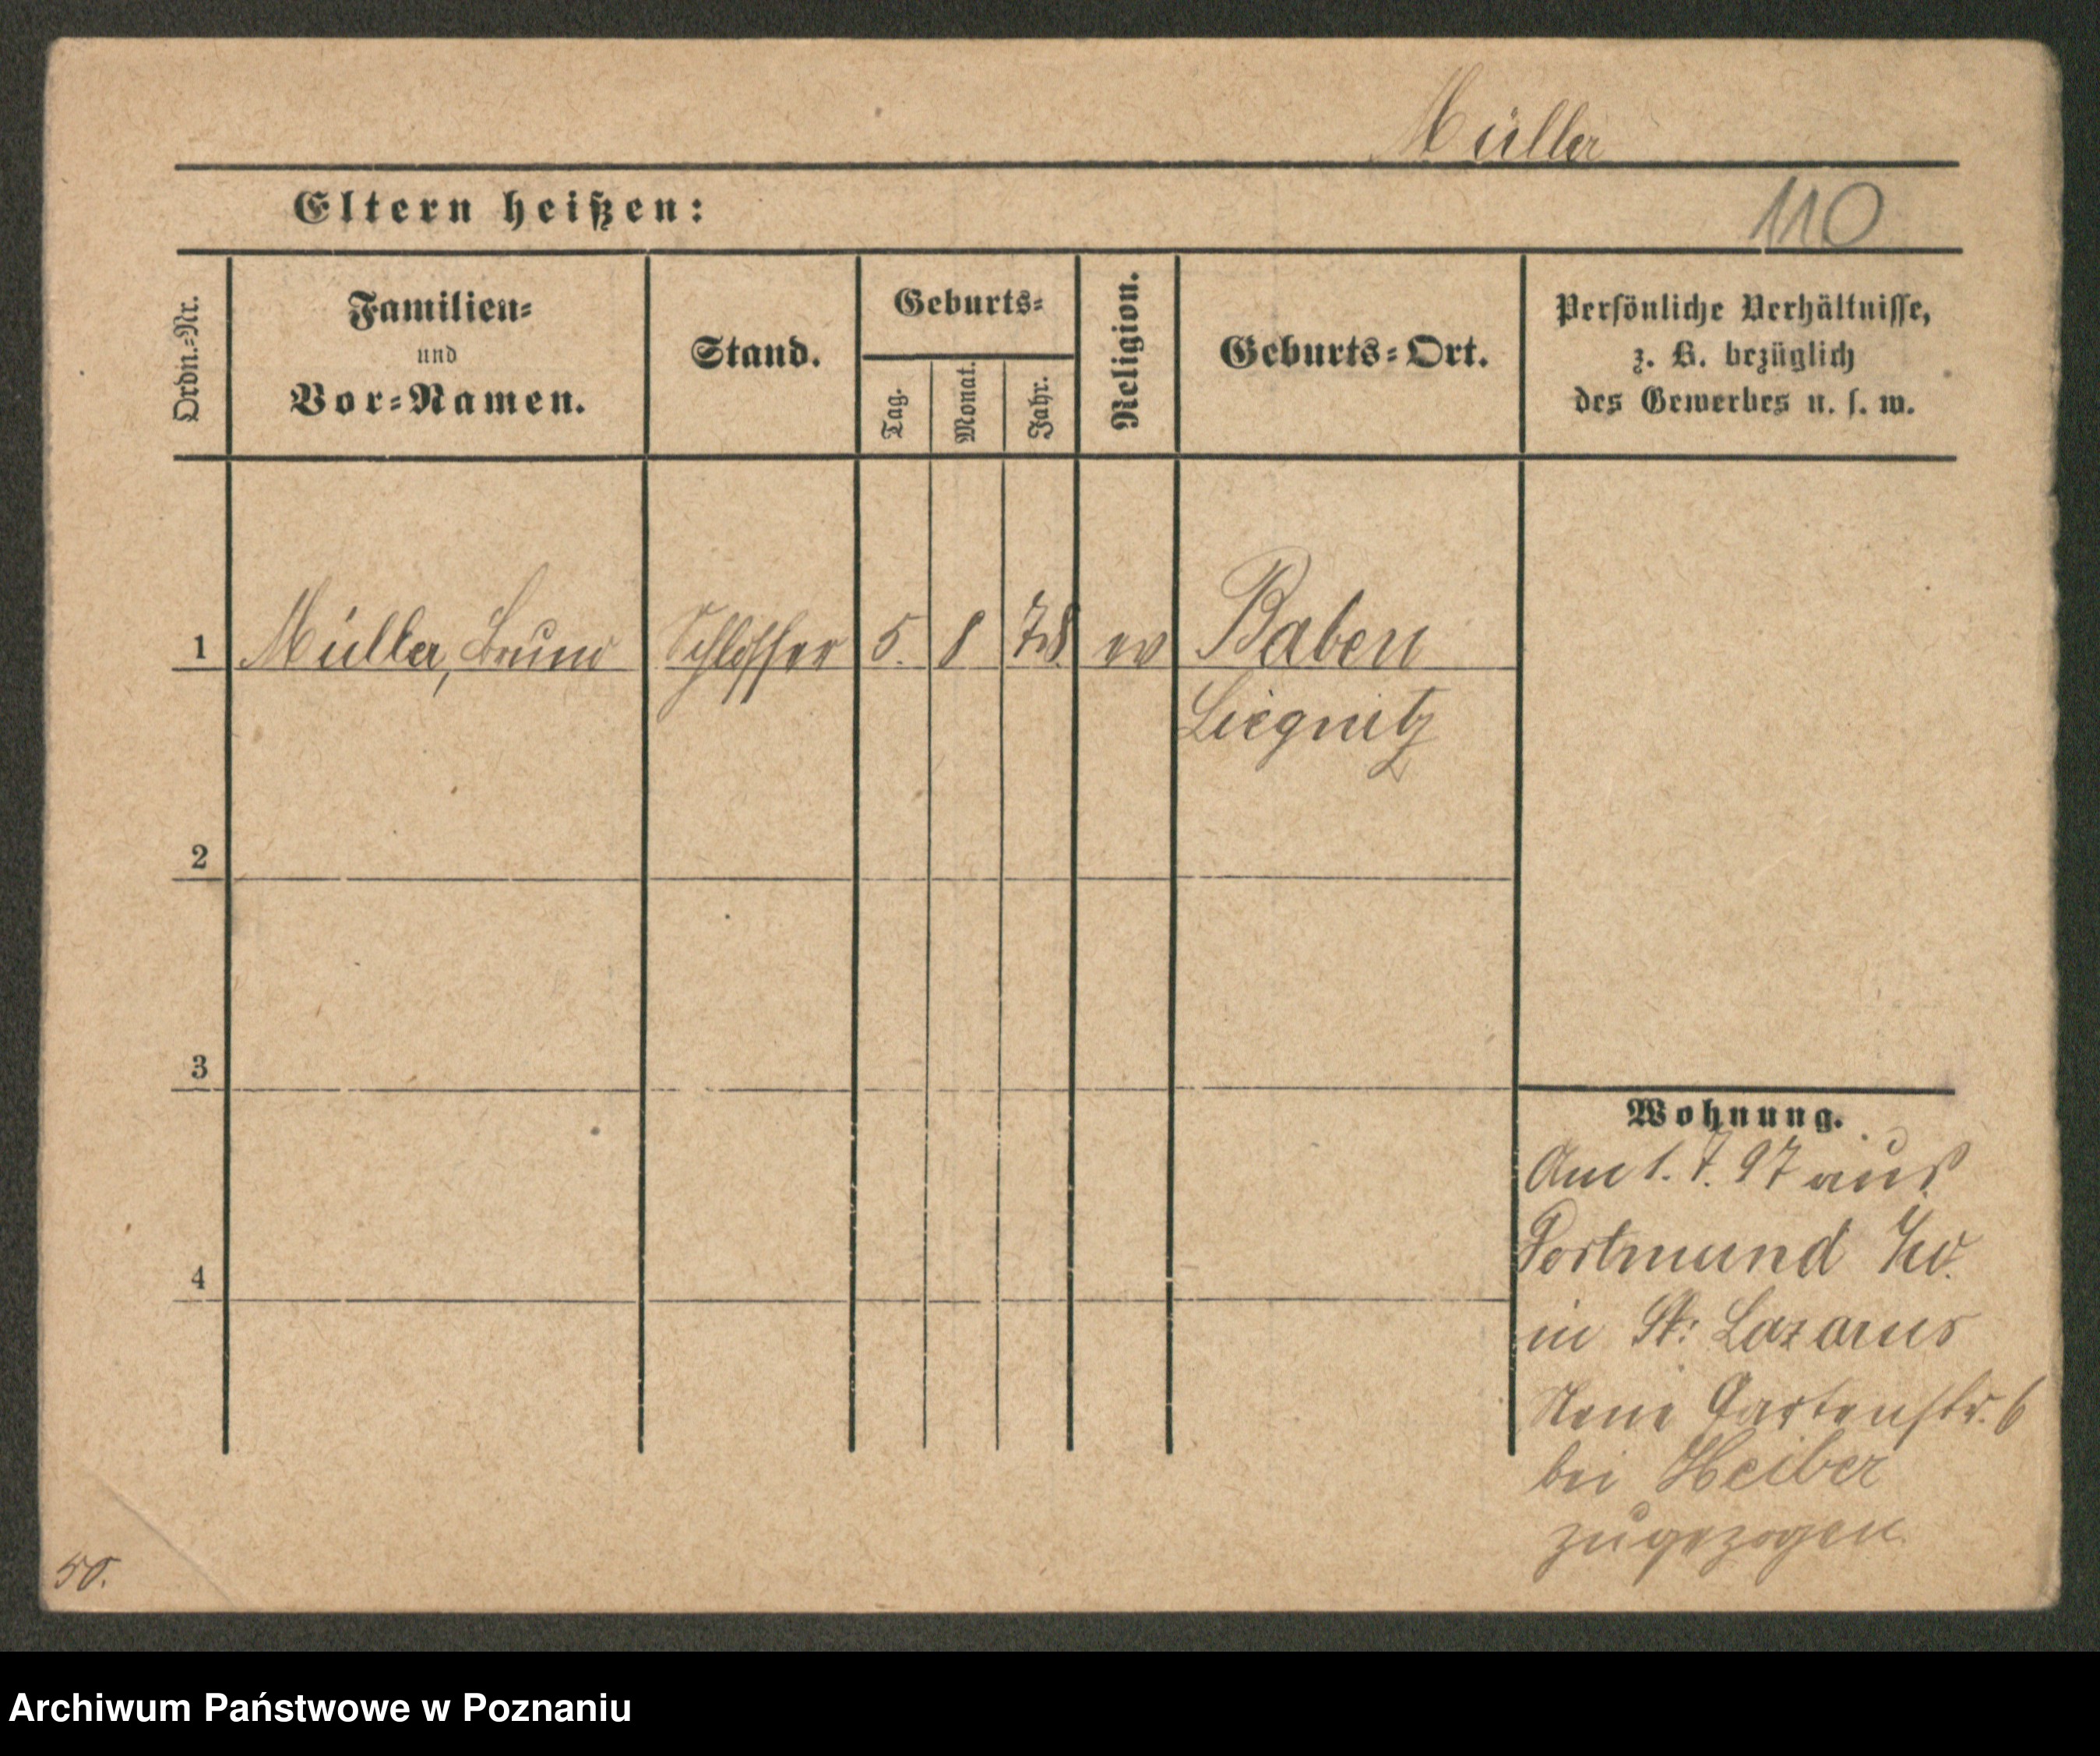 Müller
Eltern heißen:
110
Ordn.-Nr.
Familien-
und
Vor-Namen.
Stand.
Geburts-
Tag.
Monat.
Jahr.
Religion.
Geburts-Ort.
Persönliche Verhältnisse,
z. B. bezüglich
des Gewerbes u. s. w.
1 Müller, Bruno Schlosser 5. 8 78 ev Baben
Liegnitz
2
3
4
Wohnung.
Am 1. 7. 97 aus
Dortmund
in St: Lazarus
Neue Gartenstr. 6
bei Heiber
zugezogen
50.
Archiwum Państwowe w Poznaniu